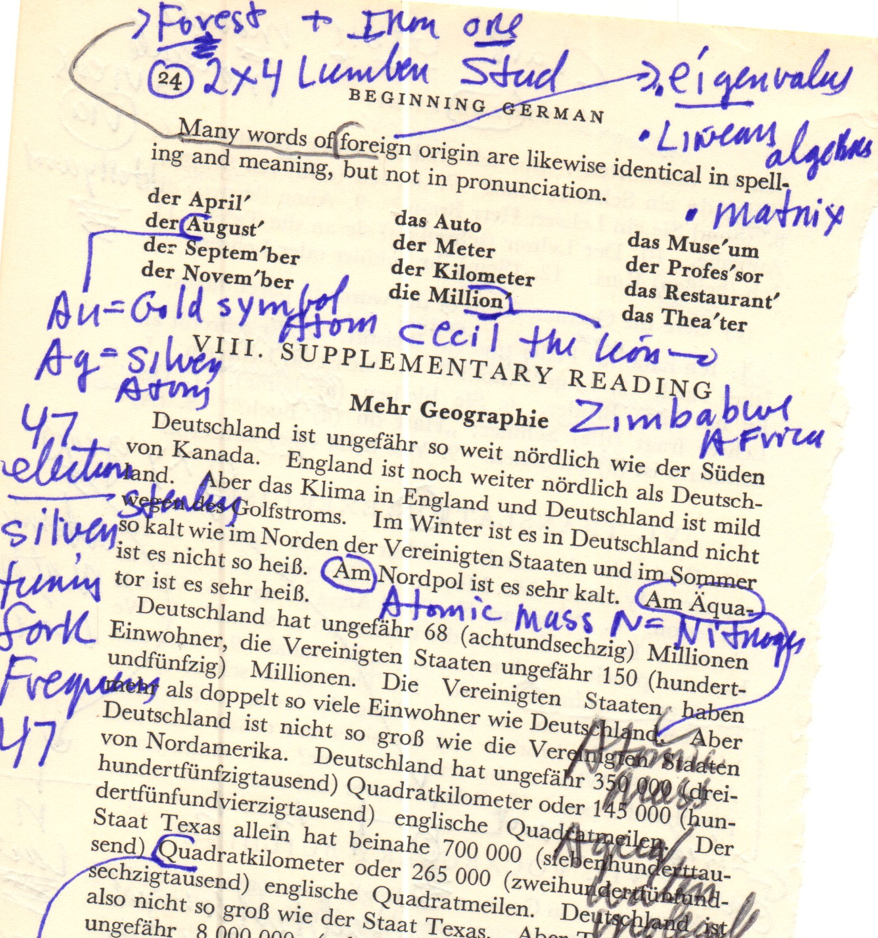 Forest + Ihm one
24 2x4 Lumber Stud
eigenvalue
BEGINNING GERMAN
• Linear algebra
• matrix
Many words of foreign origin are likewise identical in spell-
ing and meaning, but not in pronunciation.
der April′
der August′
der Septem′ber
der Novem′ber
das Auto
der Meter
der Kilometer
die Million′
das Muse′um
der Profes′sor
das Restaurant′
das Thea′ter
Au = Gold symbol
Atom
Cecil the lion
Ag = silver
Atom
VIII. SUPPLEMENTARY READING
Mehr Geographie
Zimbabwe
Africa
47
election
sterling
silver
tuning
fork
Frequency
47
Deutschland ist ungefähr so weit nördlich wie der Süden
von Kanada. England ist noch weiter nördlich als Deutsch-
land. Aber das Klima in England und Deutschland ist mild
wegen des Golfstroms. Im Winter ist es in Deutschland nicht
so kalt wie im Norden der Vereinigten Staaten und im Sommer
ist es nicht so heiß. Am Nordpol ist es sehr kalt. Am Äqua-
tor ist es sehr heiß.
Atomic mass N = Nitrogen
Deutschland hat ungefähr 68 (achtundsechzig) Millionen
Einwohner, die Vereinigten Staaten ungefähr 150 (hundert-
undfünfzig) Millionen. Die Vereinigten Staaten haben
mehr als doppelt so viele Einwohner wie Deutschland. Aber
Deutschland ist nicht so groß wie die Vereinigten Staaten
von Nordamerika. Deutschland hat ungefähr 350 000 (drei-
hundertfünfzigtausend) Quadratkilometer oder 145 000 (hun-
dertfünfundvierzigtausend) englische Quadratmeilen. Der
Staat Texas allein hat beinahe 700 000 (siebenhunderttau-
send) Quadratkilometer oder 265 000 (zweihundertfünfund-
sechzigtausend) englische Quadratmeilen. Deutschland ist
also nicht so groß wie der Staat Texas. Aber
ungefähr 8 000 000
Atomic
mass